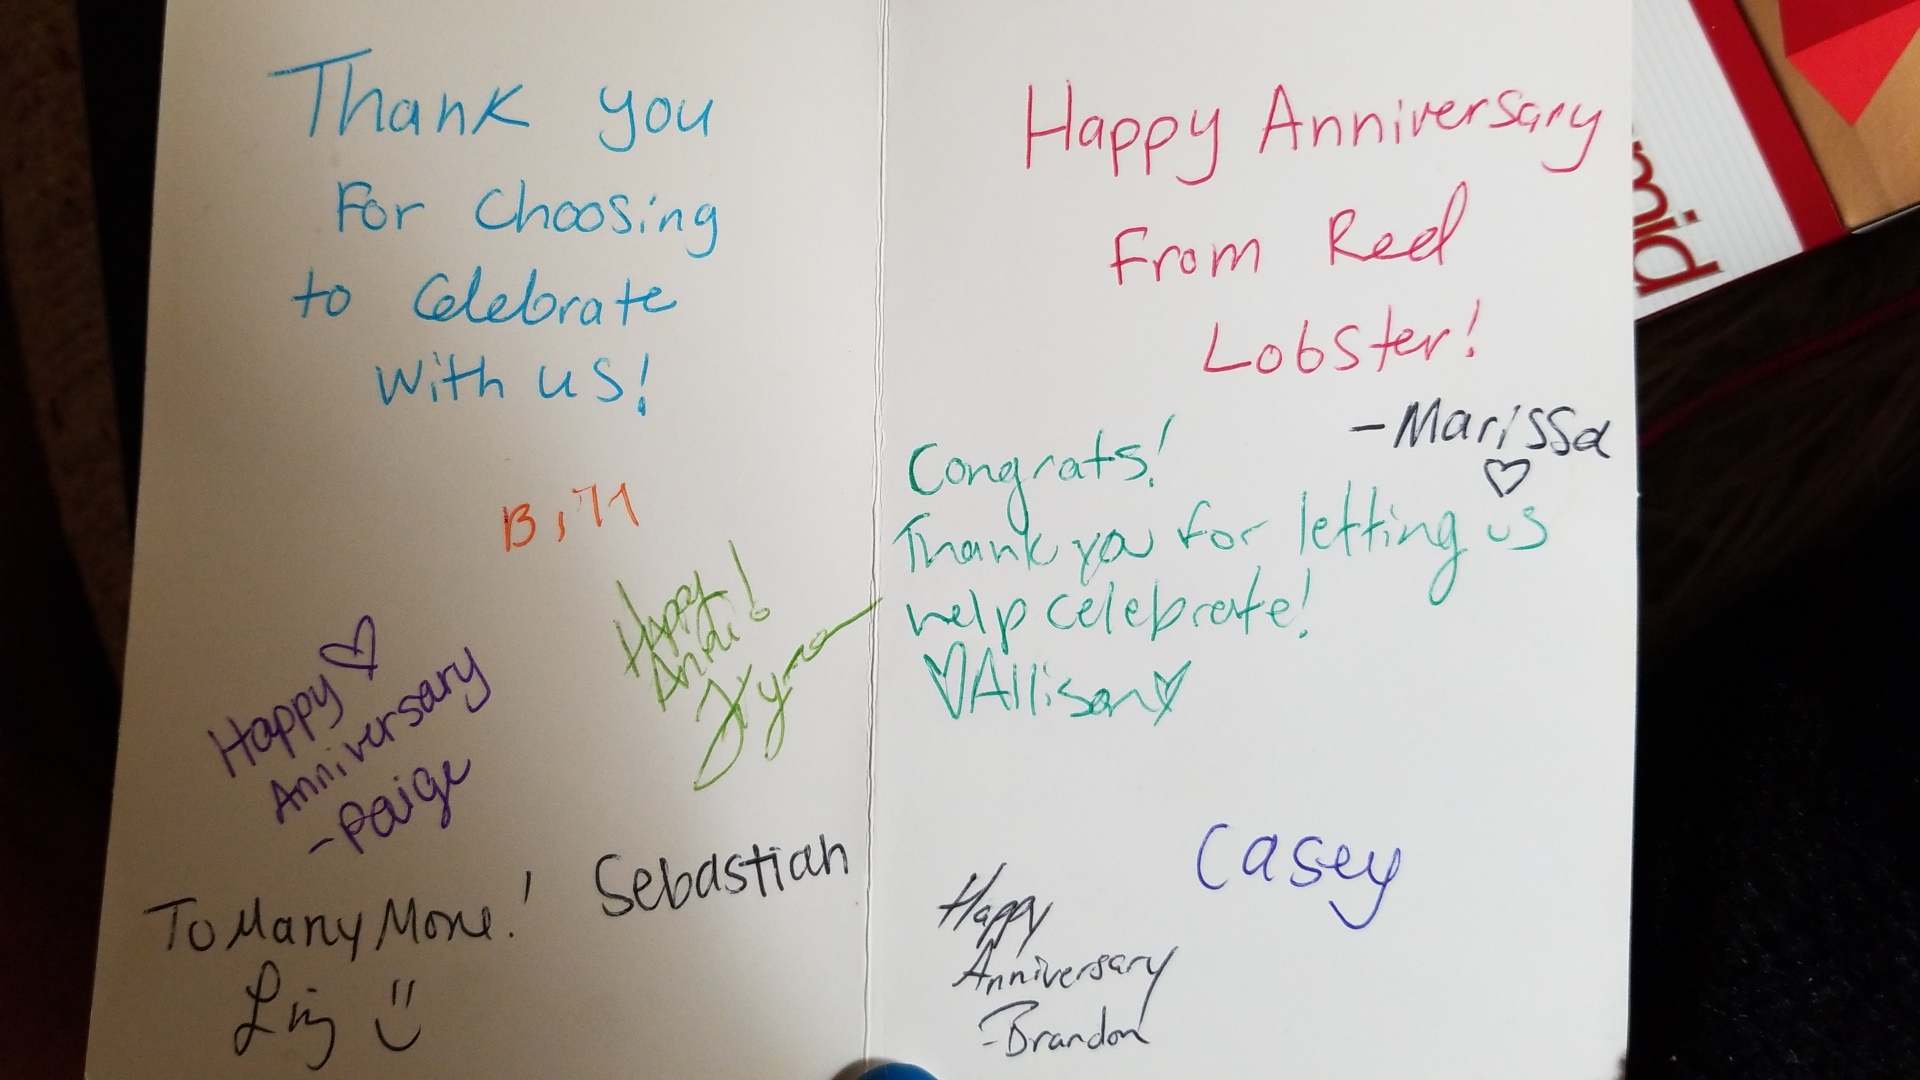 Thank you
For Choosing
to Celebrate
with us!
Bill
Happy
Anni!
Happy ♡
Anniversary
-Paige
Sebastian
To Many More!
Liz
Happy Anniversary
From Red
Lobster!
-Marissa
♡
Congrats!
Thank you for letting us
help celebrate!
♡Allison♡
Casey
Happy
Anniversary
-Brandon
mid